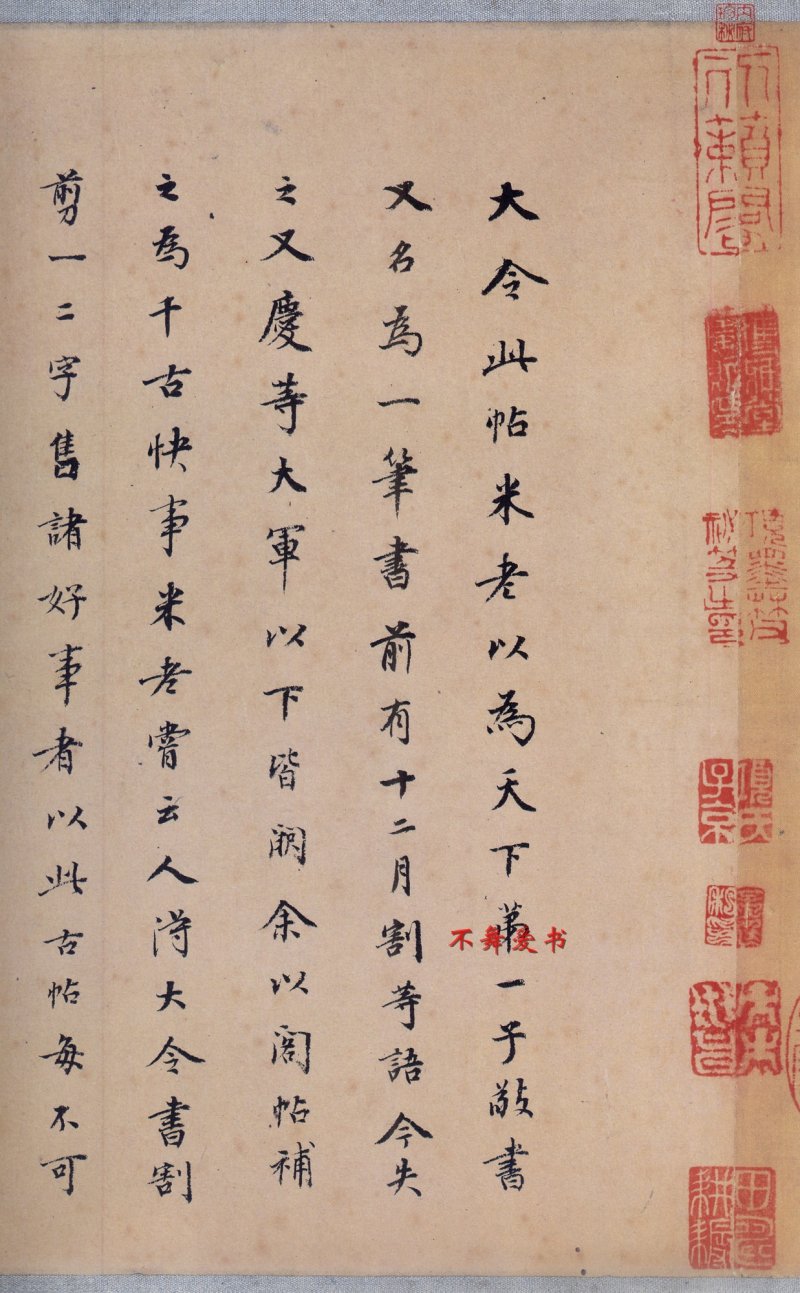 大令此帖米老以為天下第一子敬書
又名為一筆書前有十二月割等語今失
之又慶等大軍以下皆闕余以閣帖補
之為千古快事米老嘗云人得大令書割
剪一二字售諸好事者以此古帖每不可
不舞爱书
天籟閣
項元
子京